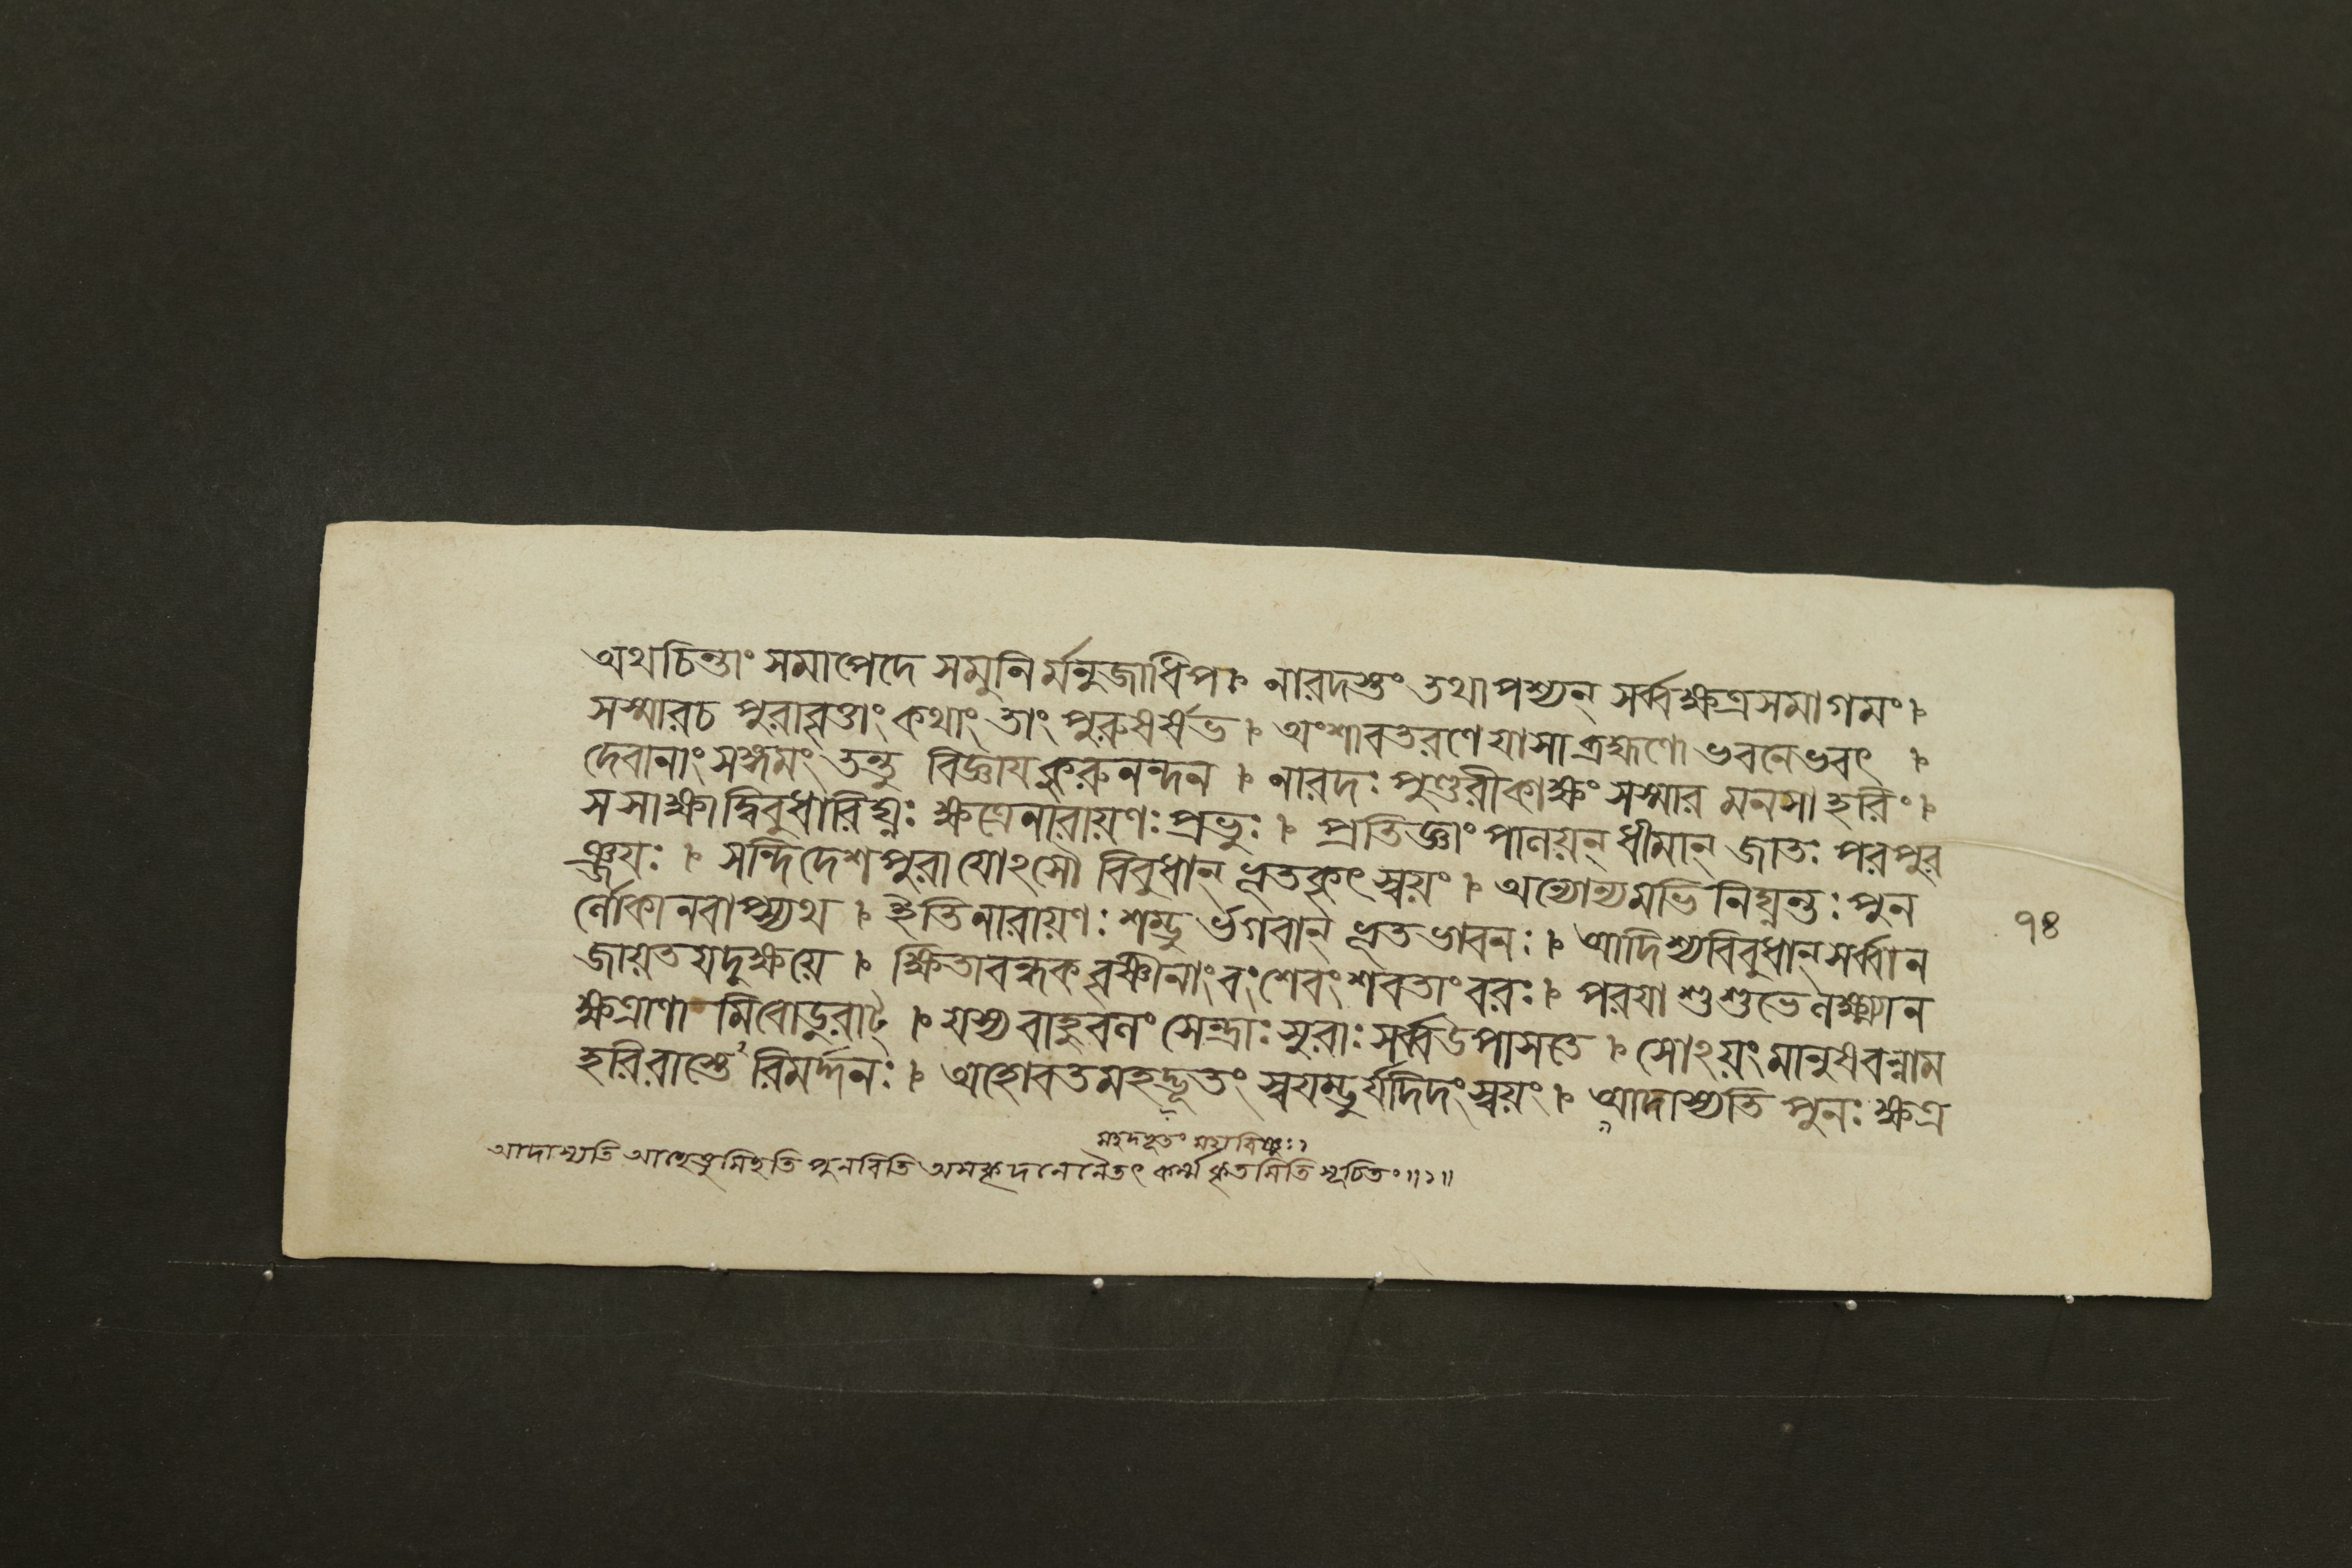 অথচিন্তাং সমাপেদে সমুনির্মনুজাধিপ। নারদস্তং তথাপশ্যন্ সর্ব্বক্ষত্রসমাগমং।
সস্মারচ পুরাবৃত্তাং কথাং তাং পুরুষর্ষভ। অংশাবতরণে যাসা ব্রহ্মণো ভবনেভবৎ।
দেবানাং সঙ্গমং তন্তু বিজ্ঞায কুরুনন্দন। নারদঃ পুণ্ডরীকাক্ষং সস্মার মনসা হরিং।
সসাক্ষাদ্বিবুধারিঘ্নঃ ক্ষত্রেনারায়ণঃ প্রভুঃ। প্রতিজ্ঞাং পালয়ন্ ধীমান্ জাতঃ পরপুর
ঞ্জযঃ। সন্দিদেশ পুরা যোঽসৌ বিবুধান্ ভূতকৃৎ স্বয়ং। অন্যোন্যমভিনিঘ্নন্তঃ পুন
র্লোকানবাপ্স্যথ। ইতিনারায়ণঃ শম্ভুর্ভগবান্ ভূতভাবনঃ। আদিশ্যবিবুধান্ সর্ব্বান
জায়ত যদুক্ষয়ে। ক্ষিতাবন্ধকবৃষ্ণীনাং বংশেবংশবতাং বরঃ। পরযা শুশুভে লক্ষ্ম্যা ন
ক্ষত্রাণামিবোডুরাট্। যস্য বাহুবলং সেন্দ্রাঃ সুরাঃ সর্ব্ব উপাসতে। সোঽয়ং মানুষবন্নাম
হরিরাস্তেঽরিমর্দ্দনঃ। অহোবত মহদ্ভূতং স্বযম্ভুর্যদিদং স্বয়ং। আদাস্যতি পুনঃ ক্ষত্র
৭৪
মহদদ্ভূতং মহাবিষ্ণুঃ১
আদাস্যতি পুনরিতি অসকৃদনেনৈতৎ কর্ম্ম কৃতমিতি সূচিতং॥১॥